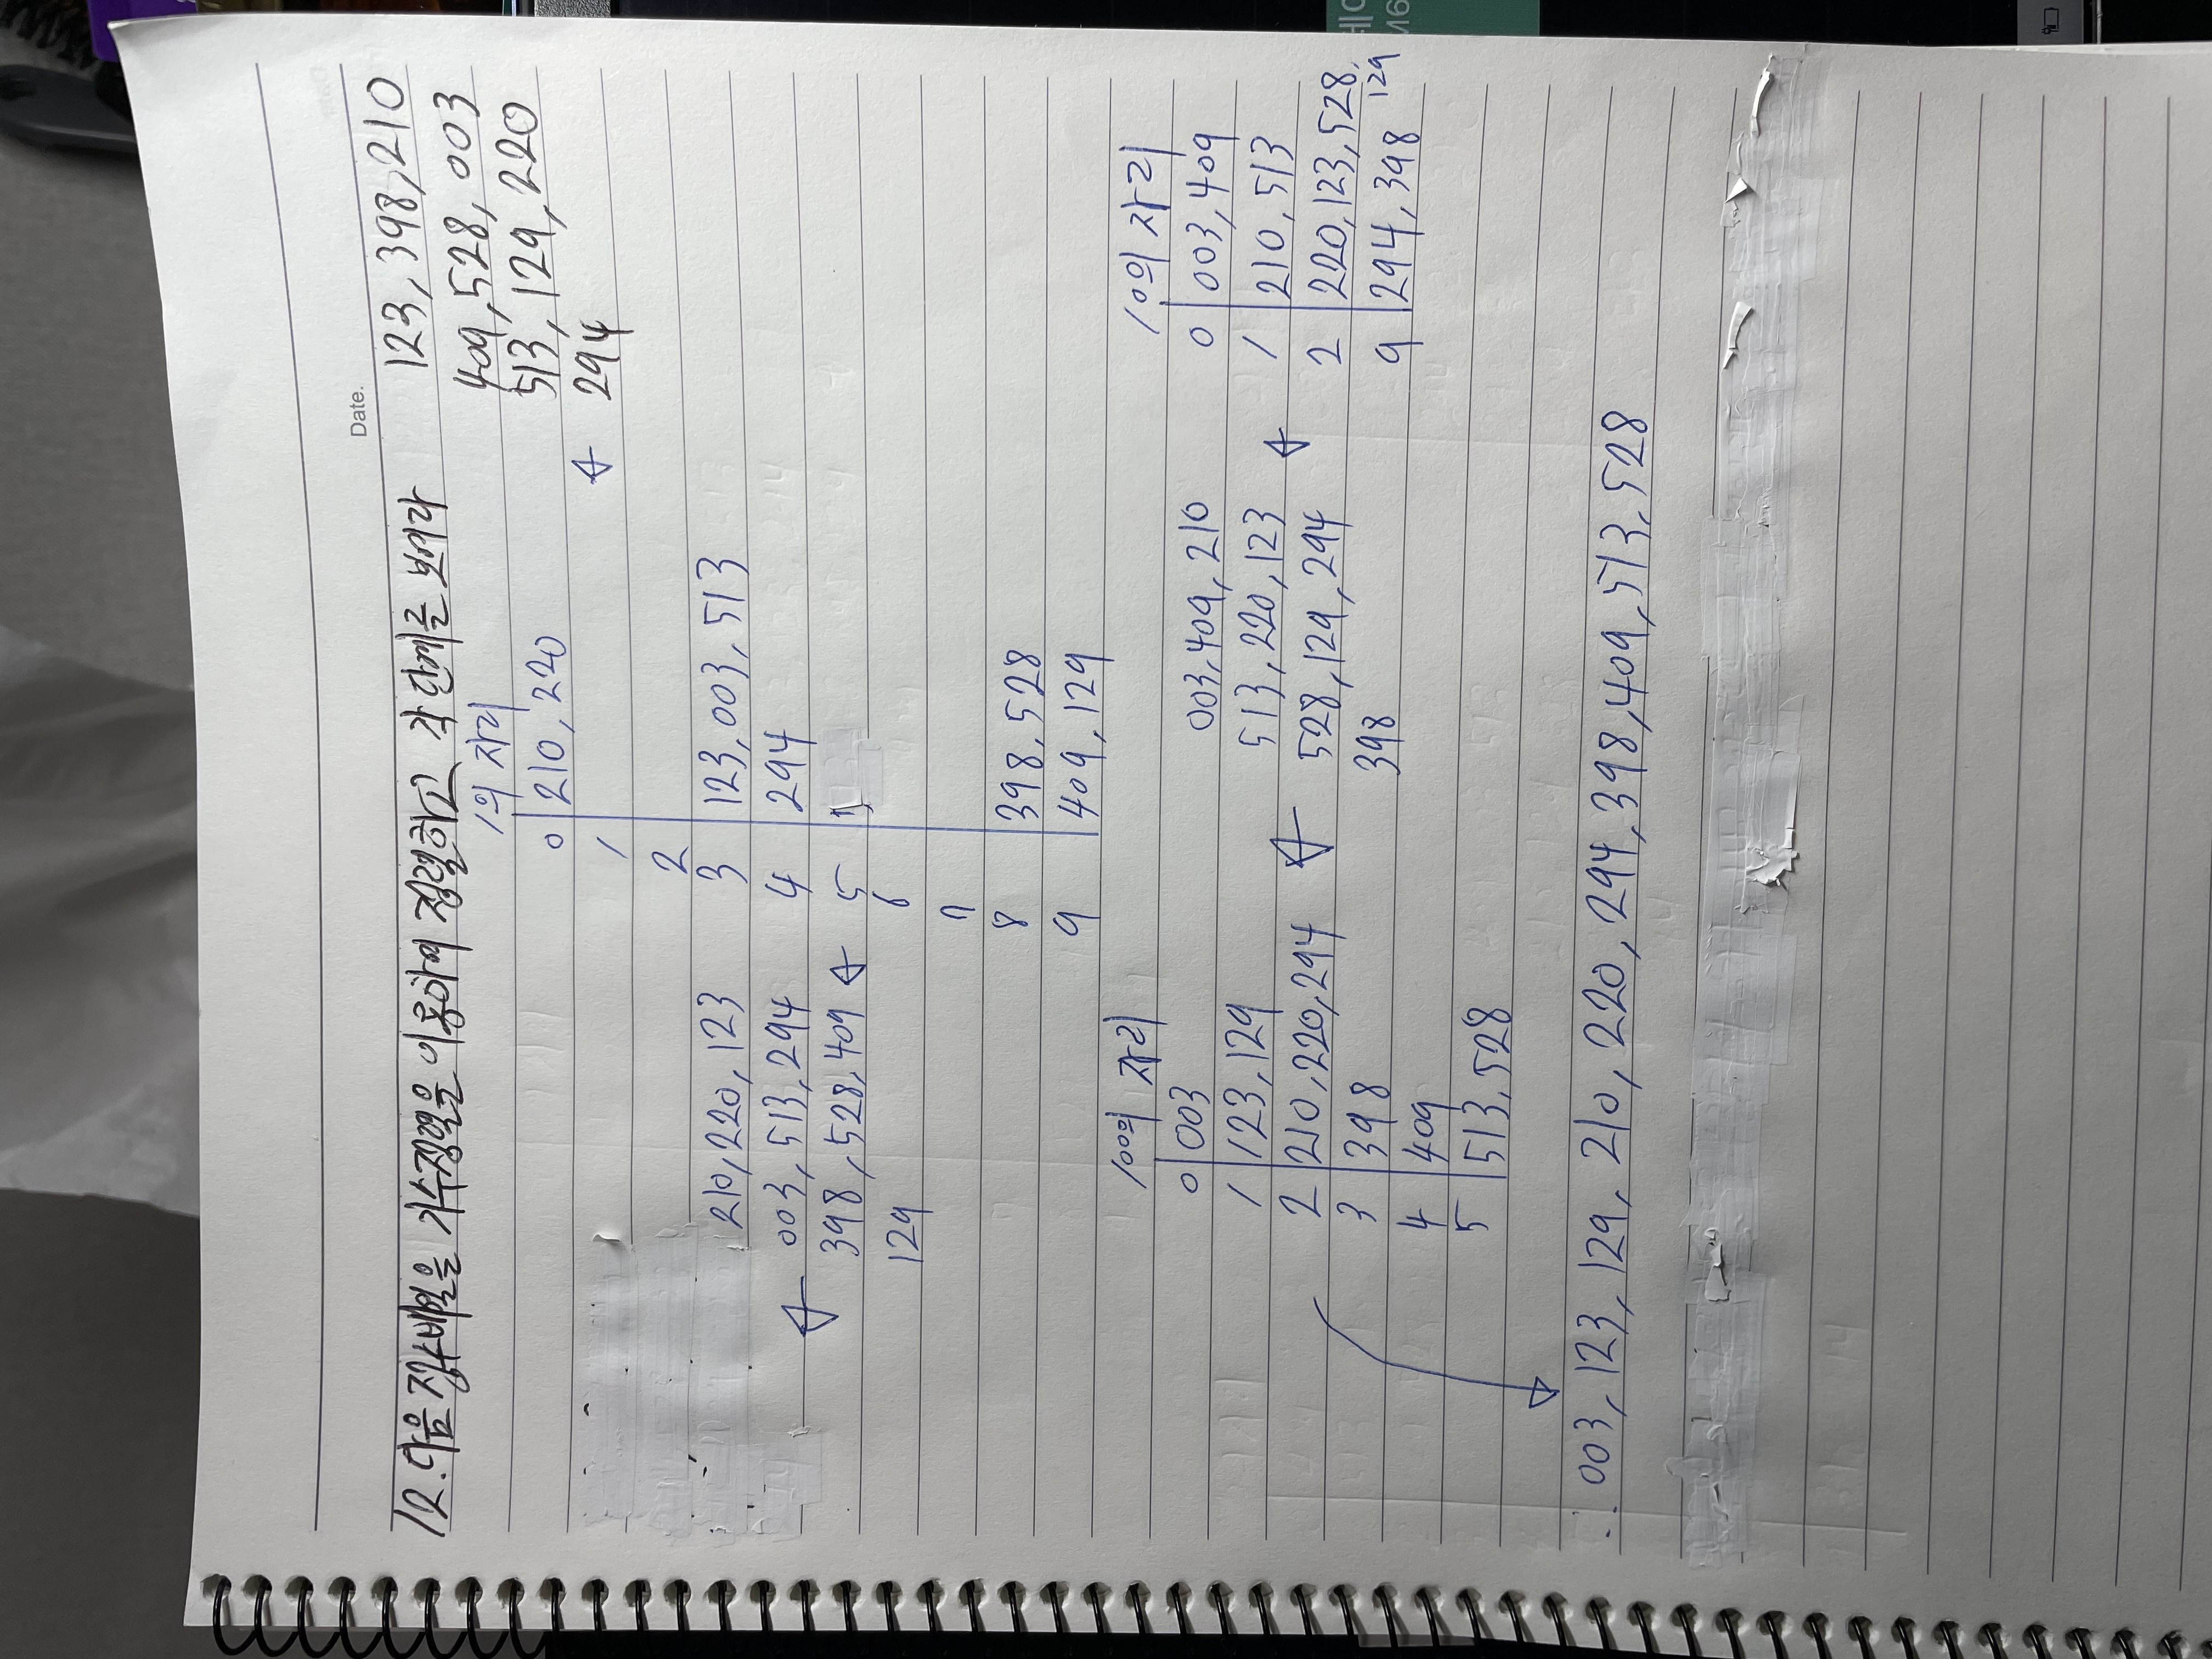 Date.
12. 다음 정수배열을 기수정렬을 이용하여 정렬하고 각 단계를 보여라
123, 398, 210
409, 528, 003
513, 129, 220
294
1의 자리
0 210, 220
1
2
3 123, 003, 513
4 294
5
6
7
8 398, 528
9 409, 129
210, 220, 123
003, 513, 294
398, 528, 409
129
10의 자리
0 003, 409
1 210, 513
2 220, 123, 528, 129
9 294, 398
003, 409, 210
513, 220, 123
528, 129, 294
398
100의 자리
0 003
1 123, 129
2 210, 220, 294
3 398
4 409
5 513, 528
∴ 003, 123, 129, 210, 220, 294, 398, 409, 513, 528